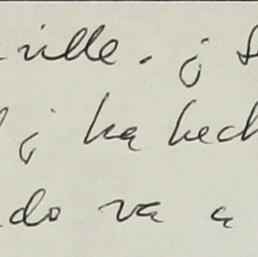 ville. ¡
¡ ha hech
do va a